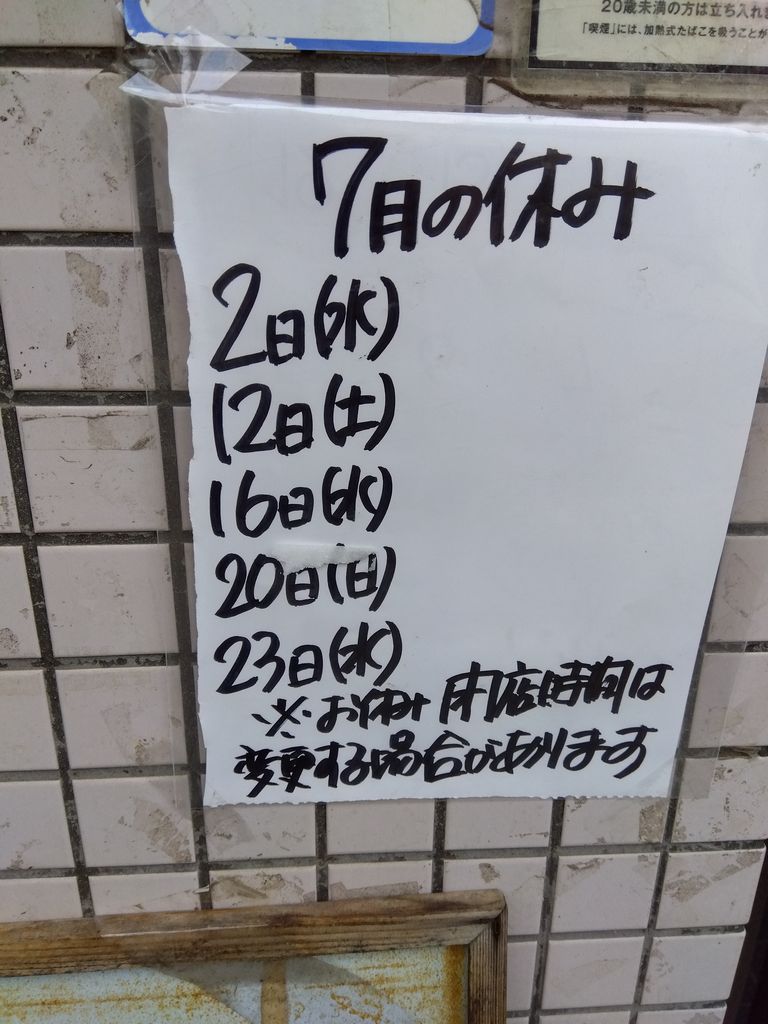 20歳未満の方は立ち入れ
「喫煙」には、加熱式たばこを吸うことが
7月の休み
2日(水)
12日(土)
16日(水)
20日(日)
23日(水)
※お休み 閉店時間は
変更する場合があります